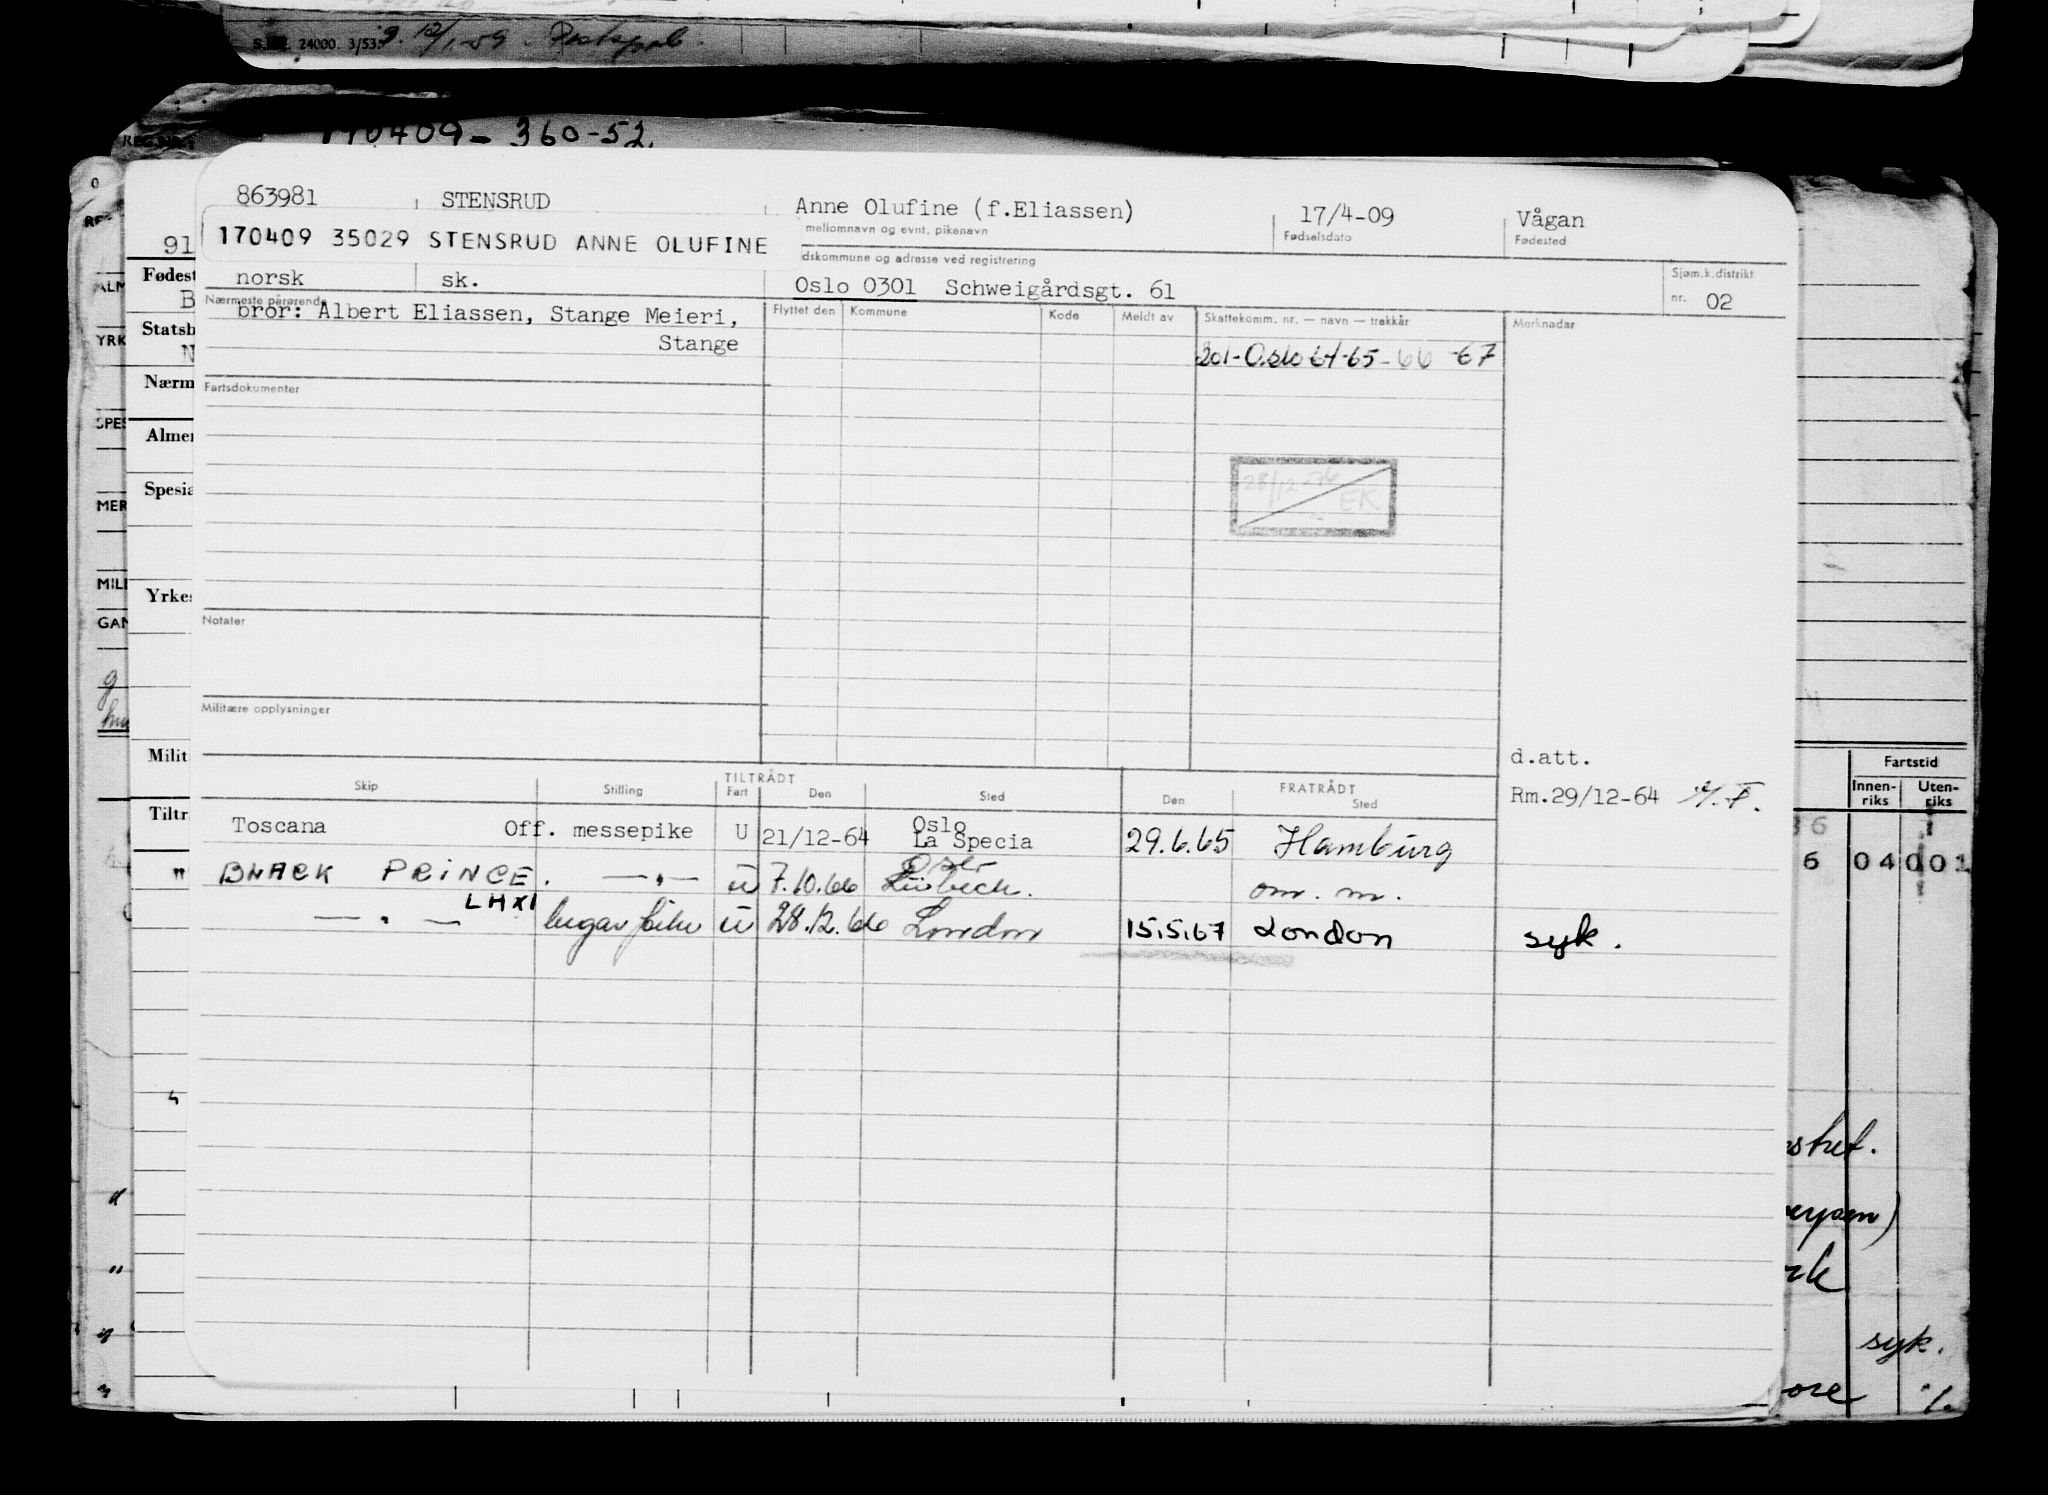 S.&J. 24000. 3/53.
170409 - 360-52
863981 STENSRUD Anne Olufine (f.Eliassen) 17/4-09 Vågan
mellomnavn og evnt. pikenavn Fødselsdato Fødested
170409 35029 STENSRUD ANNE OLUFINE
dskommune og adresse ved registrering Sjøm.k.distrikt
norsk sk. Oslo 0301 Schweigårdsgt. 61 nr. 02
Nærmeste pårørende Flyttet den Kommune Kode Meldt av Skattekomm. nr. — navn — trekkår Merknader
bror: Albert Eliassen, Stange Meieri,
Stange
301-Oslo 64-65-66-67
Fartsdokumenter
28/12-76
EK
Notater
Militære opplysninger
d.att.
Rm.29/12-64
TILTRÅDT FRATRÅDT
Skip Stilling Fart Den Sted Den Sted
Toscana Off. messepike U 21/12-64 Oslo
La Specia 29.6.65 Hamburg
BLACK PRINCE. —"— u 7.10.66 Oslo
Lübeck. om. m.
LHXI
—"— lugarpike u 28.12.66 London 15.5.67 London syk.
91
Fødest
B
Statsb
N
Nærm
Almer
Spesia
Yrkes
Milit
Tiltr
"
YRK
SPES
MER
MILI
GAN
Fartstid
Innen-
riks
Uten-
riks
6 04 001
syk.